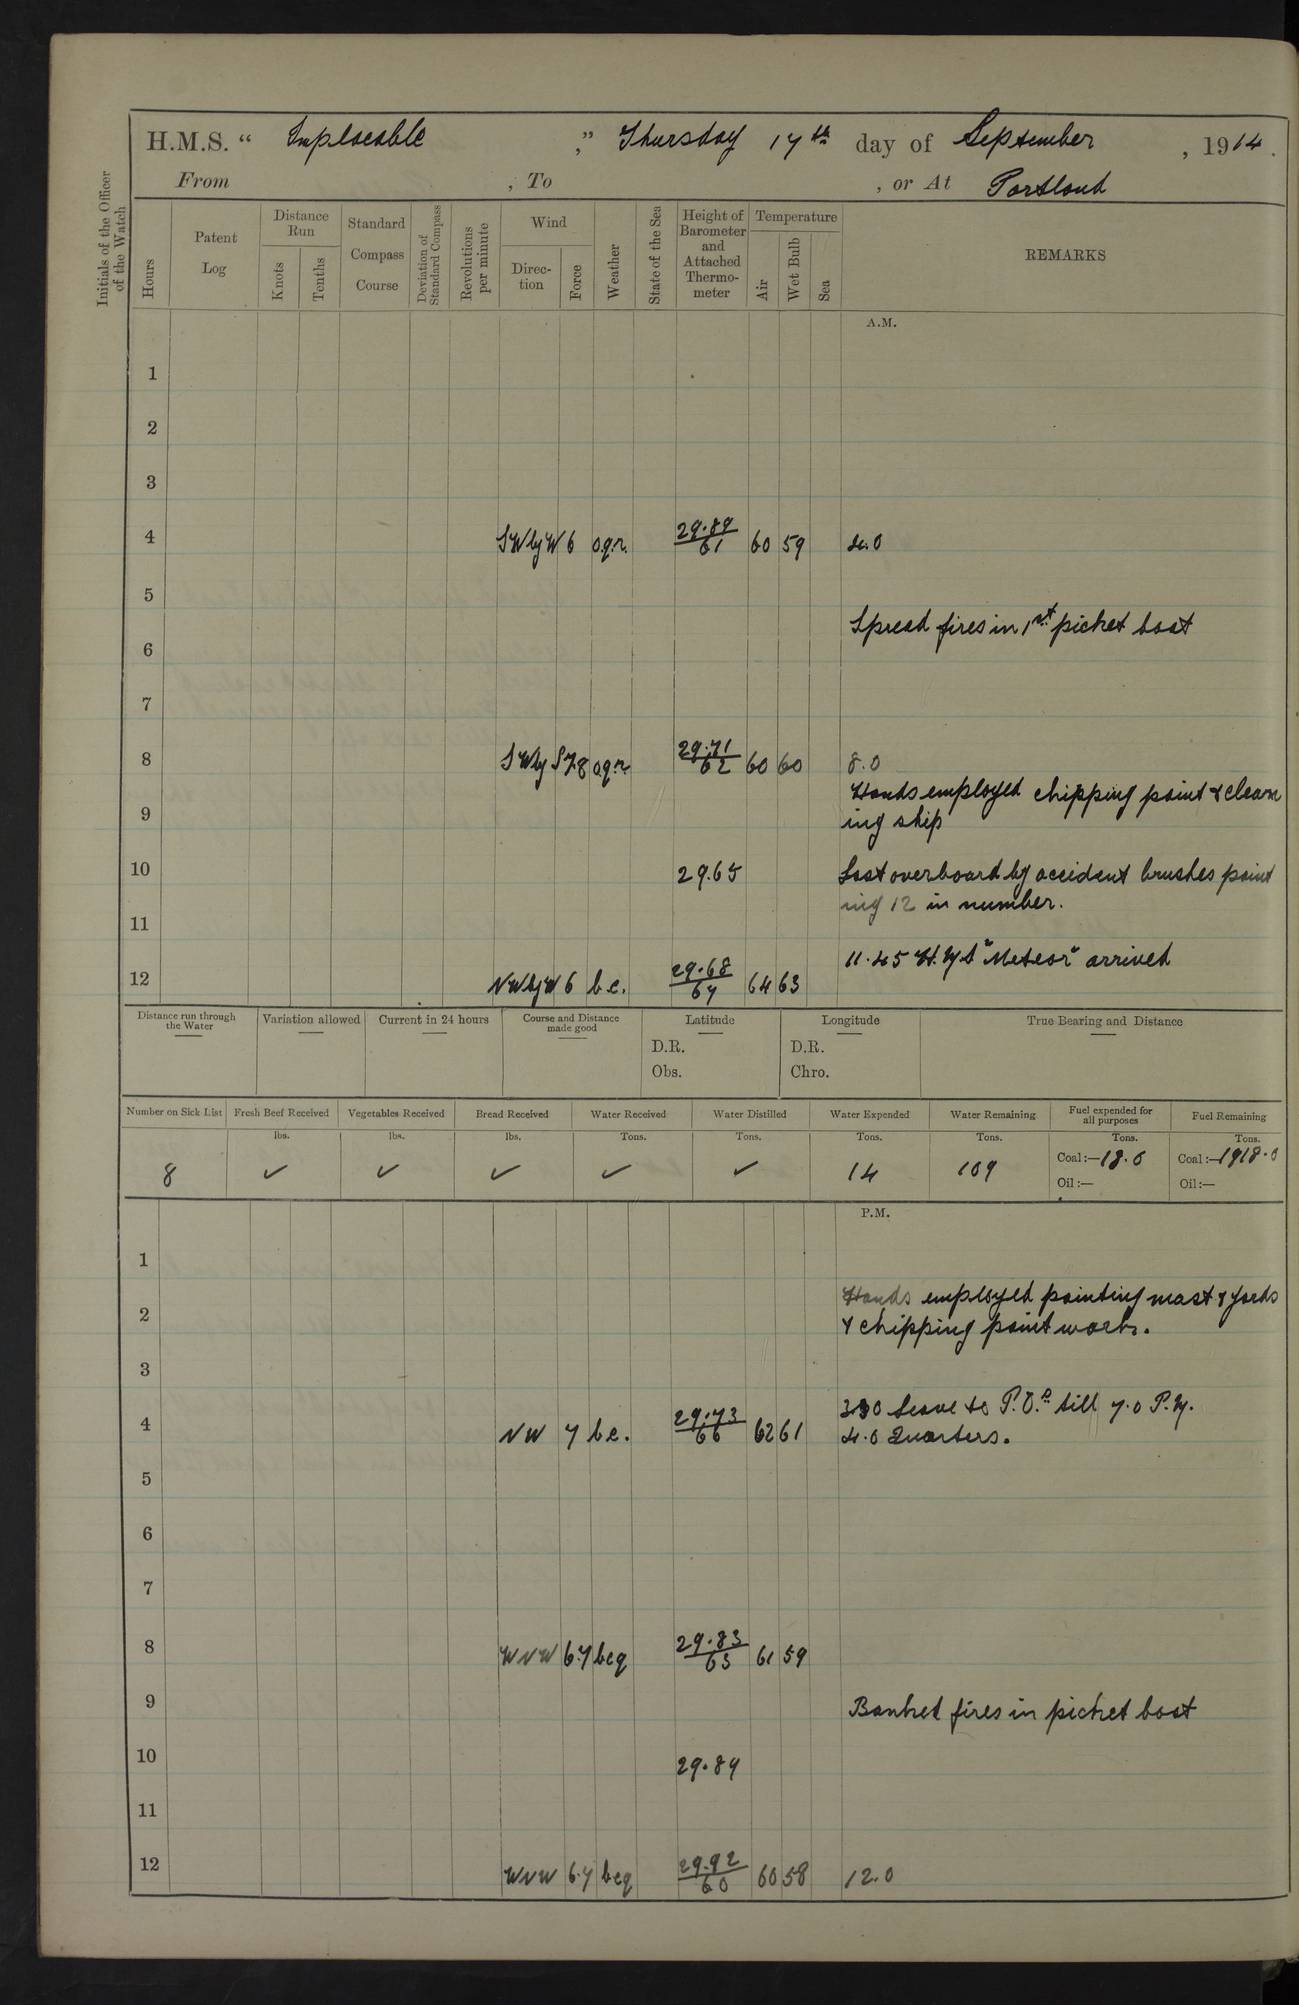 H.M.S. “ Implacable ,” Thursday 17th day of September , 1914.
From , To , or At Portland
Initials of the Officer of the Watch
Hours
Patent Log
Distance Run
Knots
Tenths
Standard Compass Course
Deviation of Standard Compass
Revolutions per minute
Wind
Direc-tion
Force
Weather
State of the Sea
Height of Barometer and Attached Thermo-meter
Temperature
Air
Wet Bulb
Sea
REMARKS
A.M.
1
2
3
4 SWbyW 6 o.q.r. 29.89/61 60 59 4.0
5
Spread fires in 1st picket boat
6
7
8 SWbyS 7.8 o.q.r. 29.71/62 60 60 8.0
Hands employed chipping paint & clean
9 ing ship
10 29.65 Lost overboard by accident brushes paint
ing 12 in number.
11
11.45 H.M.S "Meteor" arrived
12 NWbyW 6 b.c. 29.68/67 64 63
Distance run through the Water
Variation allowed
Current in 24 hours
Course and Distance made good
Latitude
D.R.
Obs.
Longitude
D.R.
Chro.
True Bearing and Distance
Number on Sick List
Fresh Beef Received
Vegetables Received
Bread Received
Water Received
Water Distilled
Water Expended
Water Remaining
Fuel expended for all purposes
Fuel Remaining
lbs. lbs. lbs. Tons. Tons. Tons. Tons. Tons. Tons.
8 ✓ ✓ ✓ ✓ ✓ 14 109 Coal:—18.0 Coal:—1918.0
Oil:— Oil:—
P.M.
1
Hands employed painting mast & yards
2 & chipping paint work.
3
3.30 Leave to P.O.s till 7.0 P.M.
4 NW 7 b.c. 29.73/66 62 61 4.0 Quarters.
5
6
7
8 WNW 6.7 bcq 29.83/63 61 59
9 Banked fires in picket boat
10 29.89
11
12 WNW 6.7 bcq 29.92/60 60 58 12.0